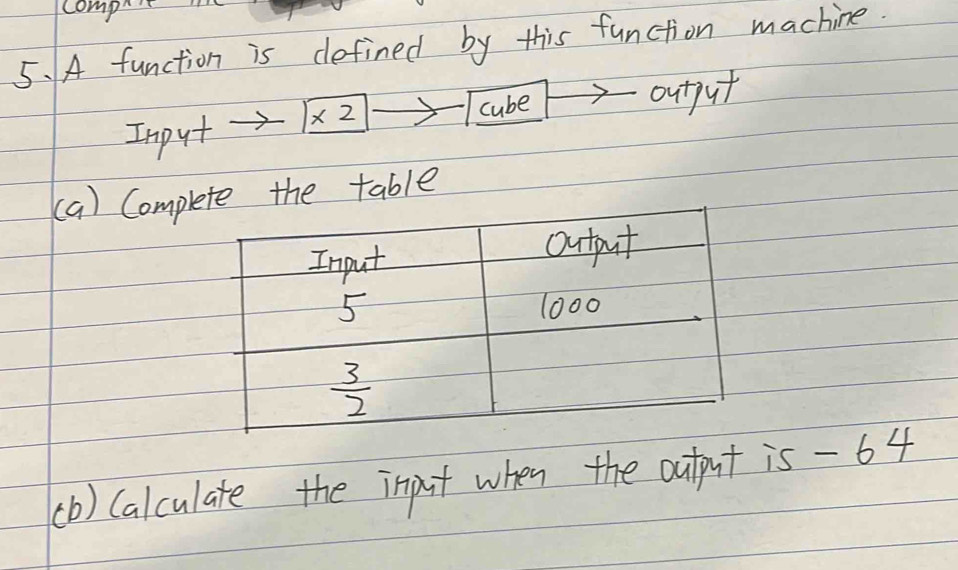 5. A function is defined by this function machine.
Input → × 2 → cube → output
(a) Complete the table
Input Output
5 1000
3/2
(b) Calculate the input when the output is - 64